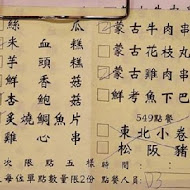 絲瓜
朱血糕
芋頭糕
鮮香菇
杏鮑菇
炙燒鯛魚片
雞心串
次限點五樣
每位單點數量限2份
蒙古牛肉串
蒙古花枝丸
蒙古雞肉串
鮮考魚下巴
549點餐
東北小卷
松阪豬
時間:
點餐人員: